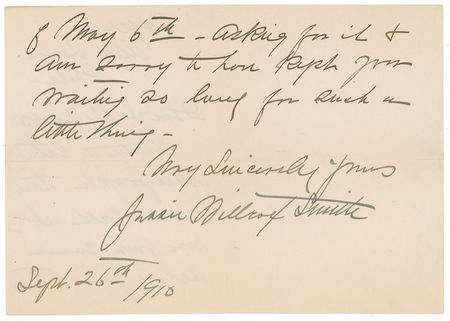 of May 6th - asking for it &
am sorry to have kept you
waiting so long for such a
little thing -
Very Sincerely Yours
Jessie Willcox Smith
Sept. 26th 1910